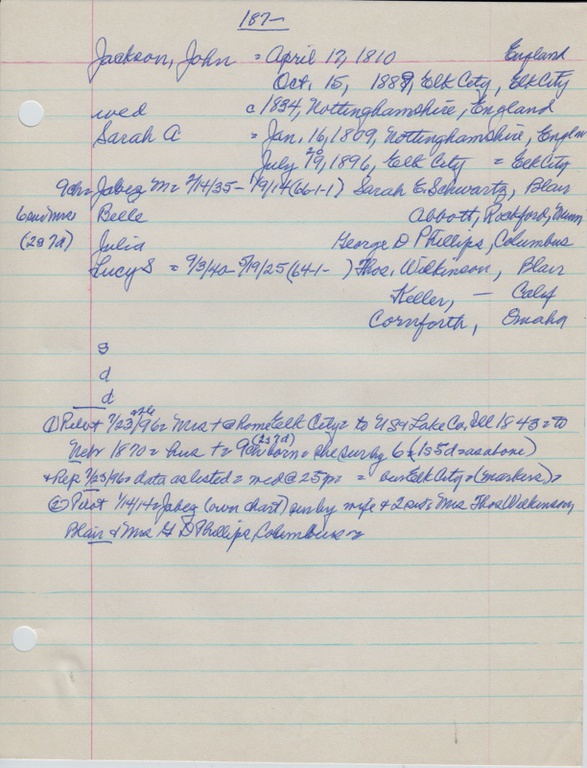 187-
Jackson, John = April 17, 1810 England
Oct. 15, 1889, Elk City, Elk City
wed c 1834, Nottinghamshire, England
Sarah A = Jan. 16, 1809, Nottinghamshire, Englan
July 19, 1896, Elk City = Elk City
9ch = Jabez M = 2/14/35 - 1/9/14 (66-1-1) Sarah E. Schwartz, Blair
6 Belle Abbott, Rockford,
(2s 7d) Julia George D Phillips, Columbus
Lucy S = 9/3/42 - 5/19/25 (64-1- ) Thos. Wilkinson, Blair
Keller, - Calif
Cornforth, Omaha
s
d
d
① Pilot 7/23/96 = Mrs + @ home Elk City = to USA Lake Co, Ill 1843 = to
Nebr 1870 = hus + = 9ch born (2s 7d) = she sur by 6 (1s 5d = as above)
+ Rep 7/23/96 = data as listed = med @ 25 = = bur Elk City = (markers) =
② Pilot 1/14/14 = Jabez (own chart) sur by wife + 2 sist = Mrs Thos Wilkinson,
Blair + Mrs G D Phillips, Columbus =